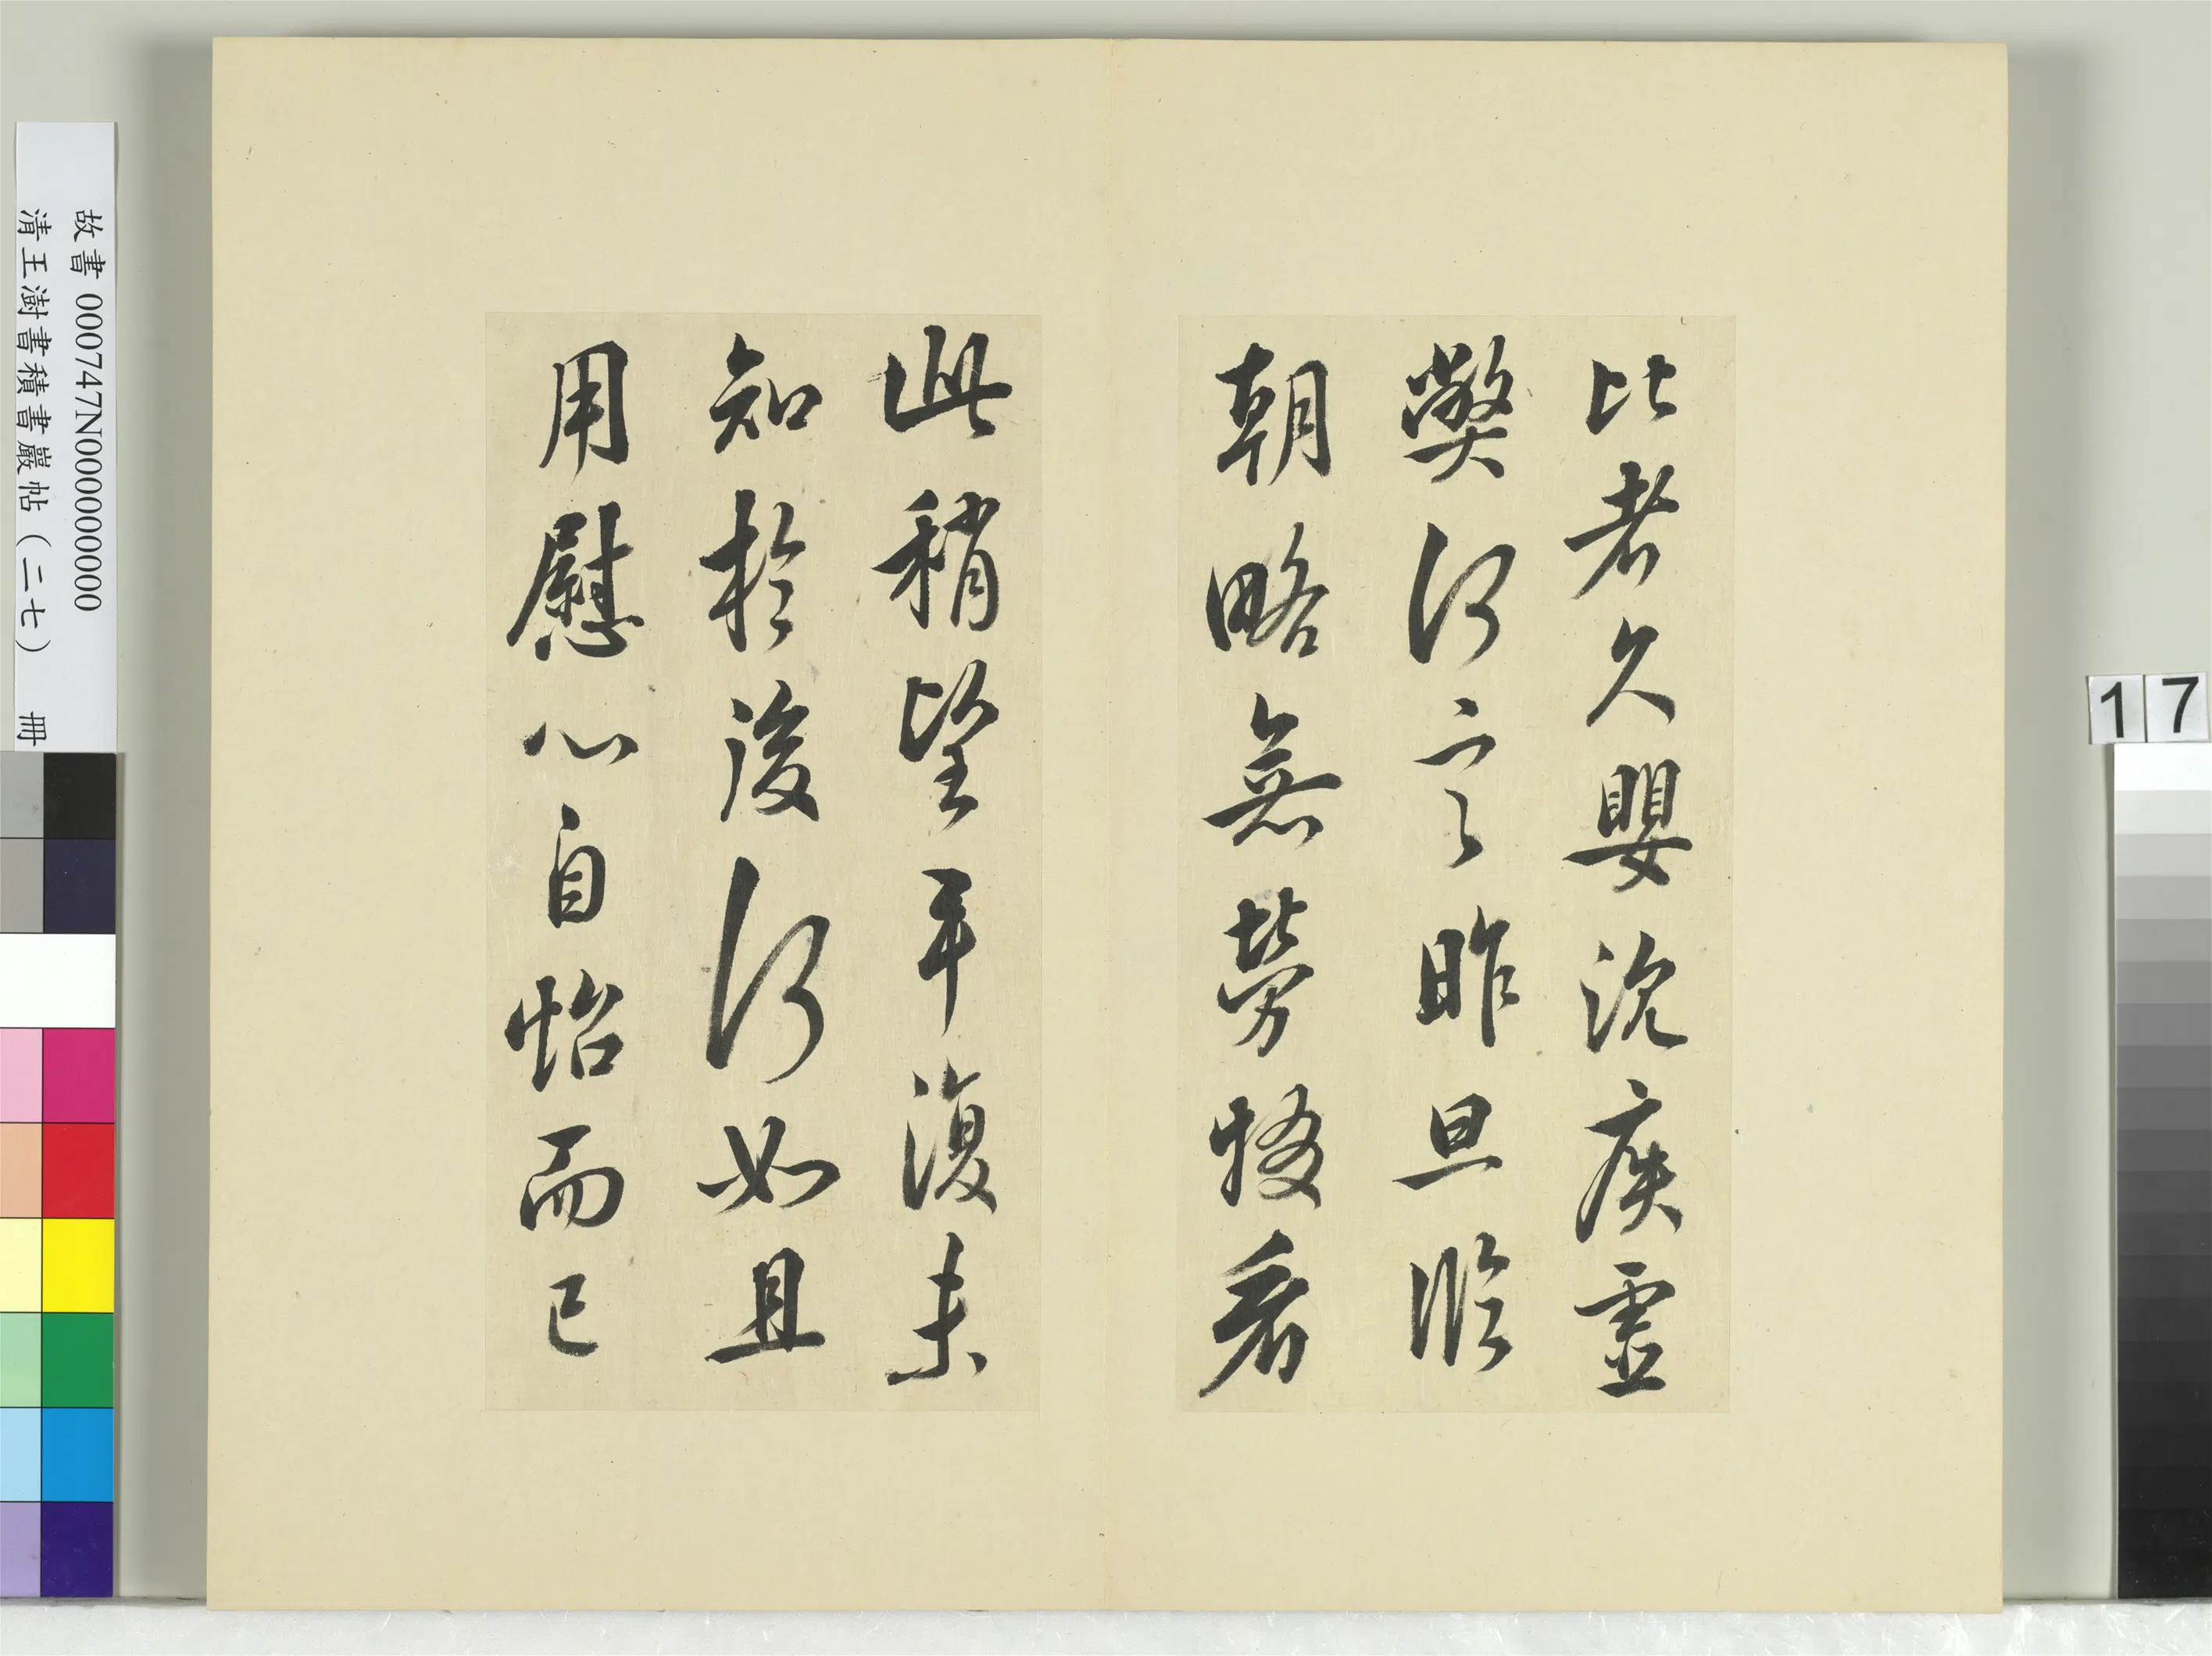 比者久嬰沈疾虛
弊何言昨旦臨
朝略無勞損看
此稍望平復未
知於後何如且
用慰心自怡而已
故書 000747N000000000
清王澍書積書巖帖(二七) 冊
17